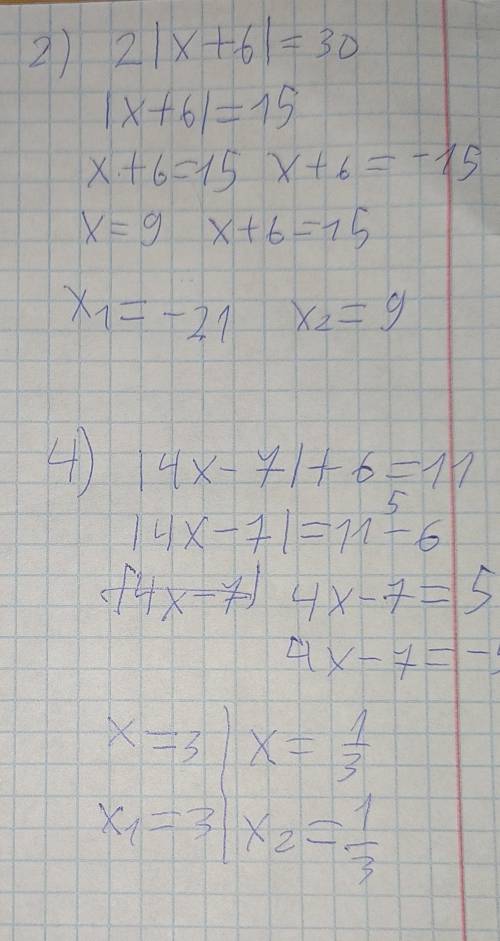 2) 2|x+6|=30
|x+6|=15
x+6=15 x+6=-15
x=9 x+6=15
x1=-21 x2=9
4) |4x-7|+6=11
|4x-7|=11-6 5
|4x-7| 4x-7=5
4x-7=-5
x=3 | x=1/3
x1=3 | x2=1/3